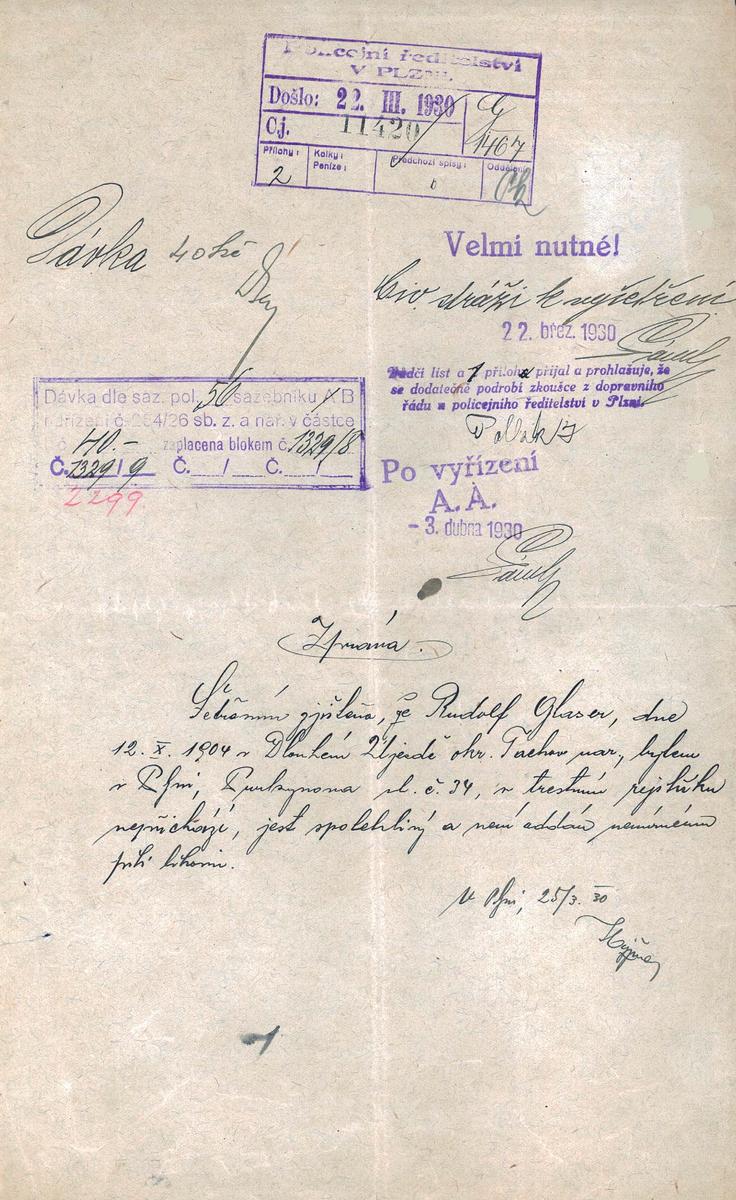 Policejní ředitelství
V PLZNI.
Došlo: 22. III. 1930
Čj. 11420
G
1467
Přílohy:
2
Kolky:
Peníze:
Předchozí spisy:
Oddělení
Dávka 40 kč
Velmi nutné!
Civ. stráži k vyšetření
22. břez. 1930
Vůdčí list a 1 příloha přijal a prohlašuje, že
se dodatečně podrobí zkoušce z dopravního
řádu u policejního ředitelství v Plzni.
Pollak J
Dávka dle saz. pol. 56 sazebníku A/B
nařízení č. 254/26 sb. z. a nař. v částce
č 40.- zaplacena blokem č. 1329/8
Č. 1329/9 Č. / Č. /
2299.
Po vyřízení
A. A.
- 3. dubna 1930
Zpráva.
Šetřením zjištěno, že Rudolf Glaser, dne
12. X. 1904 v Dlouhém Újezdě okr. Tachov nar., bytem
v Plzni, Purkyňova ul. č. 34, v trestním rejstříku
nepřichází, jest spolehlivý a není oddán nemírnému
pití lihovin.
V Plzni, 25/3. 30